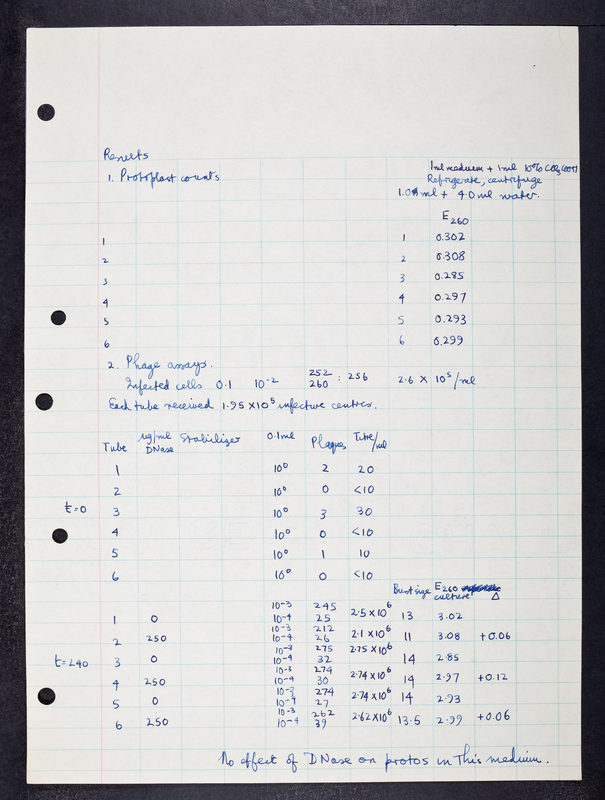 Results
1. Protoplast counts
1ml medium + 1ml 10% CCl3COOH
Refrigerate, centrifuge
1.0 ml + 4.0 ml water.
E260
1 1 0.302
2 2 0.308
3 3 0.285
4 4 0.297
5 5 0.293
6 6 0.299
2. Phage assays.
Infected cells 0.1 10-2 252 260 : 256 2.6 × 10^5/ml
Each tube received 1.95 × 10^5 infective centres.
Tube ug/ml DNase Stabilizer 0.1ml Plaques Titre/ml
1 10^0 2 20
2 10^0 0 <10
t=0 3 10^0 3 30
4 10^0 0 <10
5 10^0 1 10
6 10^0 0 <10
Burst size E260 culture Δ
10-3 245
1 0 10-4 25 2.5 × 10^6 13 3.02
10-3 212
2 250 10-4 26 2.1 × 10^6 11 3.08 +0.06
10-3 275 2.75 × 10^6
t=240 3 0 10-4 32 14 2.85
10-3 274 2.74 × 10^6
4 250 10-4 30 14 2.97 +0.12
10-3 274 2.74 × 10^6
5 0 10-4 27 14 2.93
10-3 262
6 250 10-4 39 2.62 × 10^6 13.5 2.99 +0.06
No effect of DNase on protos in this medium.